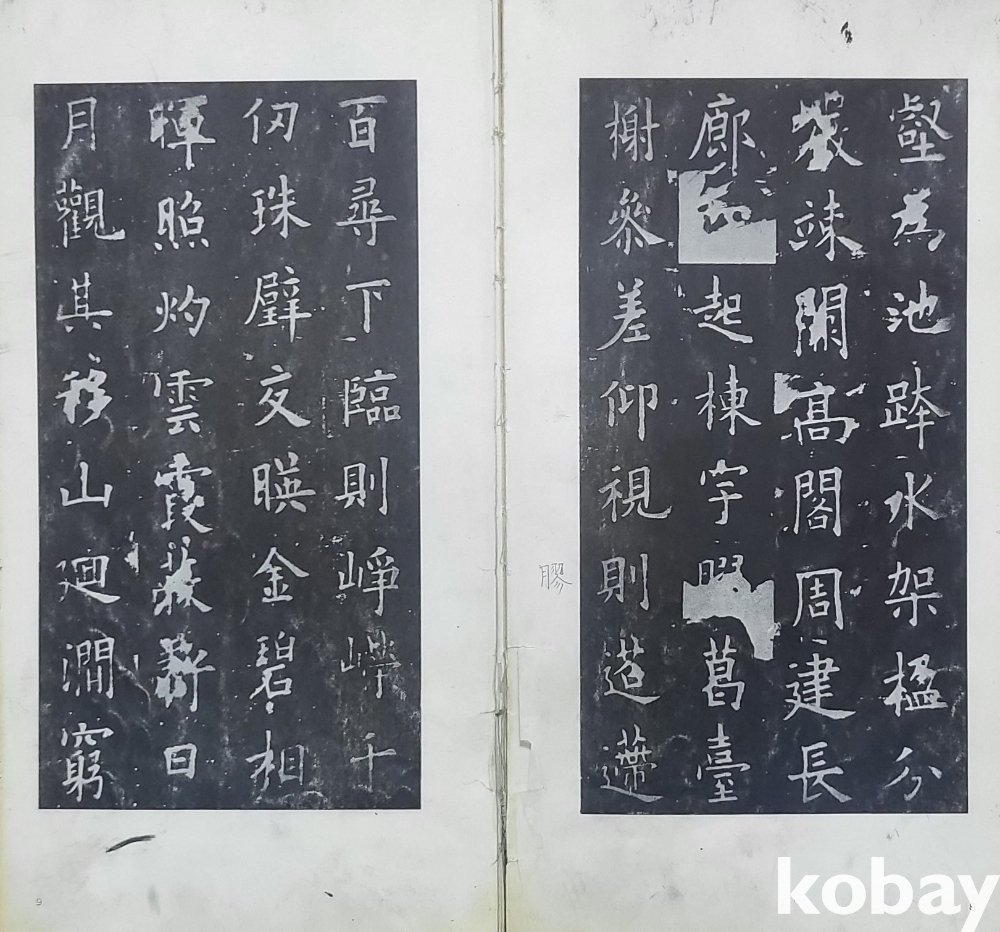 壑為池跨水架楹分
巖竦闕高閣周建長
廊四起棟宇膠葛臺
榭參差仰視則迢遰
百尋下臨則崢嶸千
仞珠璧交暎金碧相
暉照灼雲霞蔽虧日
月觀其移山迴澗窮
膠
9
kobay